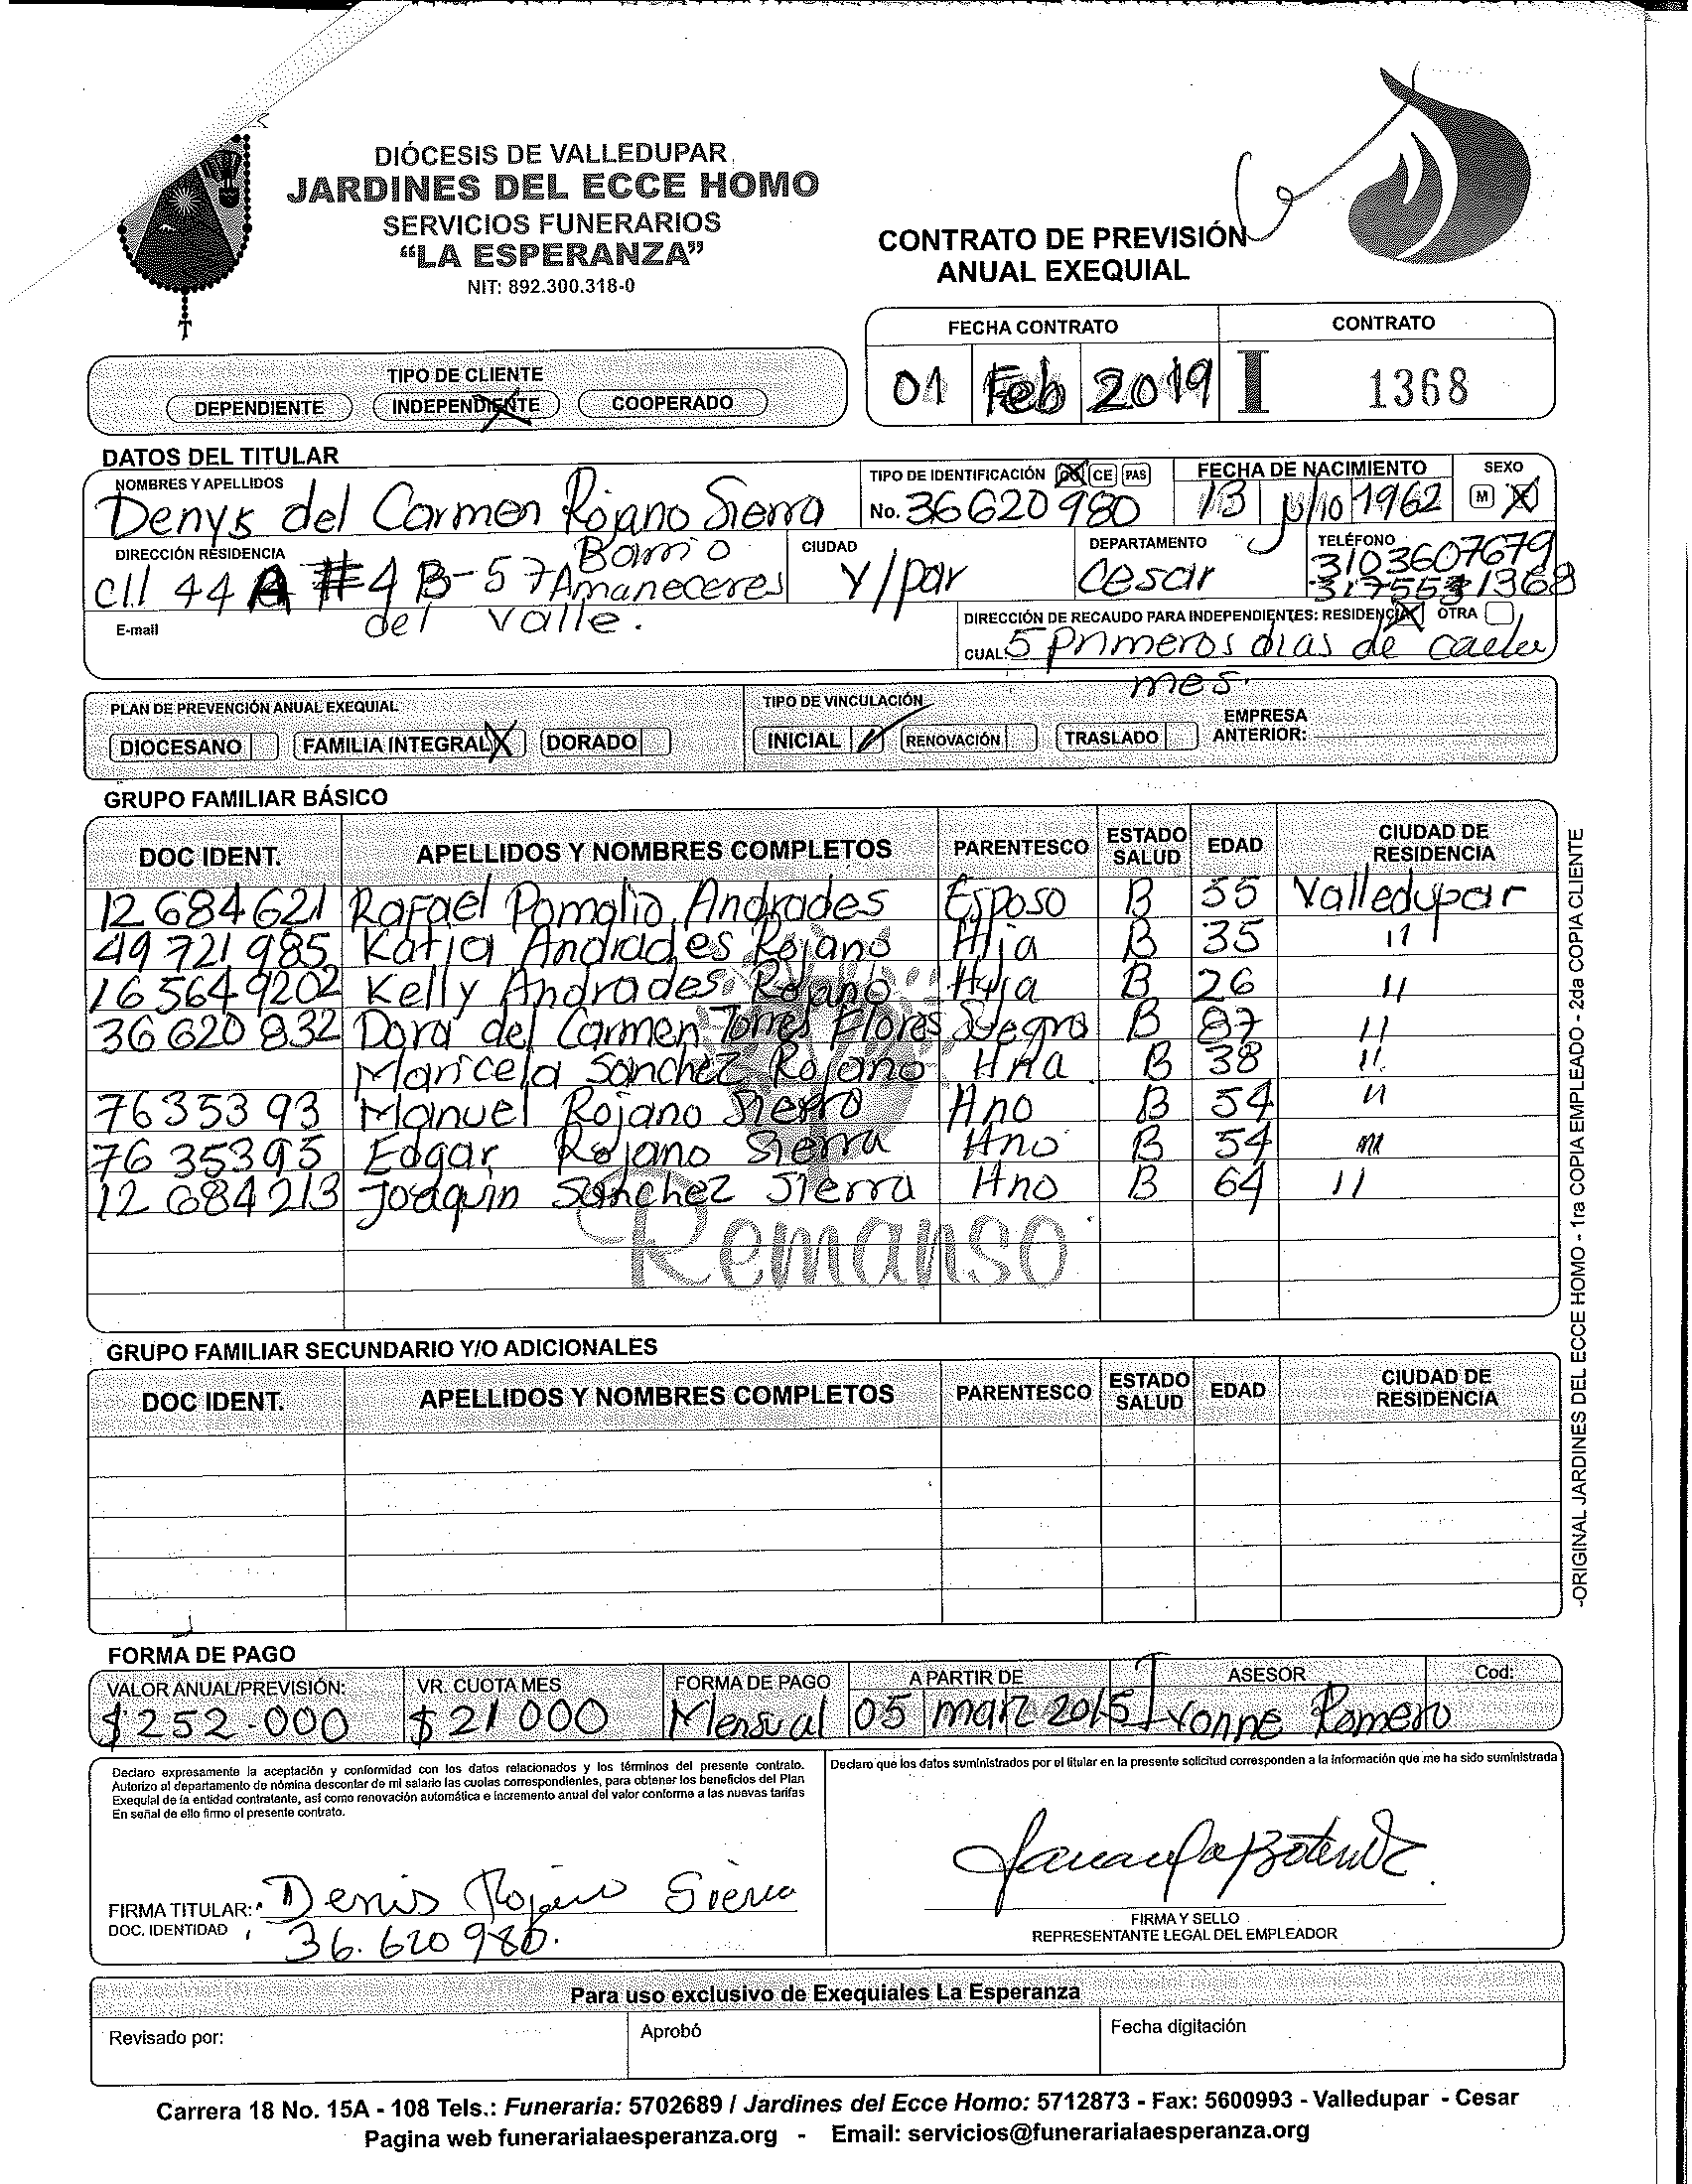 DIÓCESIS DE VALLEDUPAR
JARDINES DEL ECCE HOMO
SERVICIOS FUNERARIOS
“LA ESPERANZA”
NIT: 892.300.318-0
CONTRATO DE PREVISIÓN
ANUAL EXEQUIAL
FECHA CONTRATO CONTRATO
01 Feb 2019 I 1368
TIPO DE CLIENTE
DEPENDIENTE INDEPENDIENTE COOPERADO
DATOS DEL TITULAR
NOMBRES Y APELLIDOS
Denys del Carmen Rojano Sierra
TIPO DE IDENTIFICACIÓN CE PAS
No. 36620980
FECHA DE NACIMIENTO
13 julio 1962
SEXO
M
DIRECCIÓN RESIDENCIA
cll 44 A #4 B-57 Barrio
Amaneceres
del valle.
CIUDAD
V/par
DEPARTAMENTO
Cesar
TELÉFONO
3103607679
E-mail
DIRECCIÓN DE RECAUDO PARA INDEPENDIENTES: RESIDENCIA OTRA
CUAL: 5 primeros dias de cada
mes.
PLAN DE PREVENCIÓN ANUAL EXEQUIAL
DIOCESANO FAMILIA INTEGRAL DORADO
TIPO DE VINCULACIÓN
INICIAL RENOVACIÓN TRASLADO
EMPRESA
ANTERIOR:
GRUPO FAMILIAR BÁSICO
DOC IDENT. APELLIDOS Y NOMBRES COMPLETOS PARENTESCO ESTADO SALUD EDAD CIUDAD DE RESIDENCIA
12684621 Rafael Andrades Esposo B 55 Valledupar
49721985 Katia Andrades Rojano Hija B 35 11
1656449202 Kelly Andrades Rojano Hija B 26 11
36620832 Dora del Carmen Torres Flores Suegra B 87 11
Maricela Sanchez Rojano Hna B 38 11
7635393 Manuel Rojano Sierra Hno B 54 11
7635395 Edgar Rojano Sierra Hno B 54
12684213 Joaquin Sanchez Sierra Hno B 64 11
Remanso
GRUPO FAMILIAR SECUNDARIO Y/O ADICIONALES
DOC IDENT. APELLIDOS Y NOMBRES COMPLETOS PARENTESCO ESTADO SALUD EDAD CIUDAD DE RESIDENCIA
-ORIGINAL JARDINES DEL ECCE HOMO - 1ra COPIA EMPLEADO - 2da COPIA CLIENTE
FORMA DE PAGO
VALOR ANUAL/PREVISIÓN: VR. CUOTA MES FORMA DE PAGO A PARTIR DE ASESOR Cod:
$252.000 $21000 Mensual 05 marz 2015 Ivonne Romero
Declaro expresamente la aceptación y conformidad con los datos relacionados y los términos del presente contrato.
Autorizo al departamento de nómina descontar de mi salario las cuotas correspondientes, para obtener los beneficios del Plan
Exequial de la entidad contratante, así como renovación automática e incremento anual del valor conforme a las nuevas tarifas
En señal de ello firmo el presente contrato.
Declaro que los datos suministrados por el titular en la presente solicitud corresponden a la información que me ha sido suministrada
FIRMA TITULAR: Denis Rojano Sierra
DOC. IDENTIDAD 36.620980.
FIRMA Y SELLO
REPRESENTANTE LEGAL DEL EMPLEADOR
Para uso exclusivo de Exequiales La Esperanza
Revisado por: Aprobó Fecha digitación
Carrera 18 No. 15A - 108 Tels.: Funeraria: 5702689 / Jardines del Ecce Homo: 5712873 - Fax: 5600993 - Valledupar - Cesar
Pagina web funerarialaesperanza.org - Email: servicios@funerarialaesperanza.org